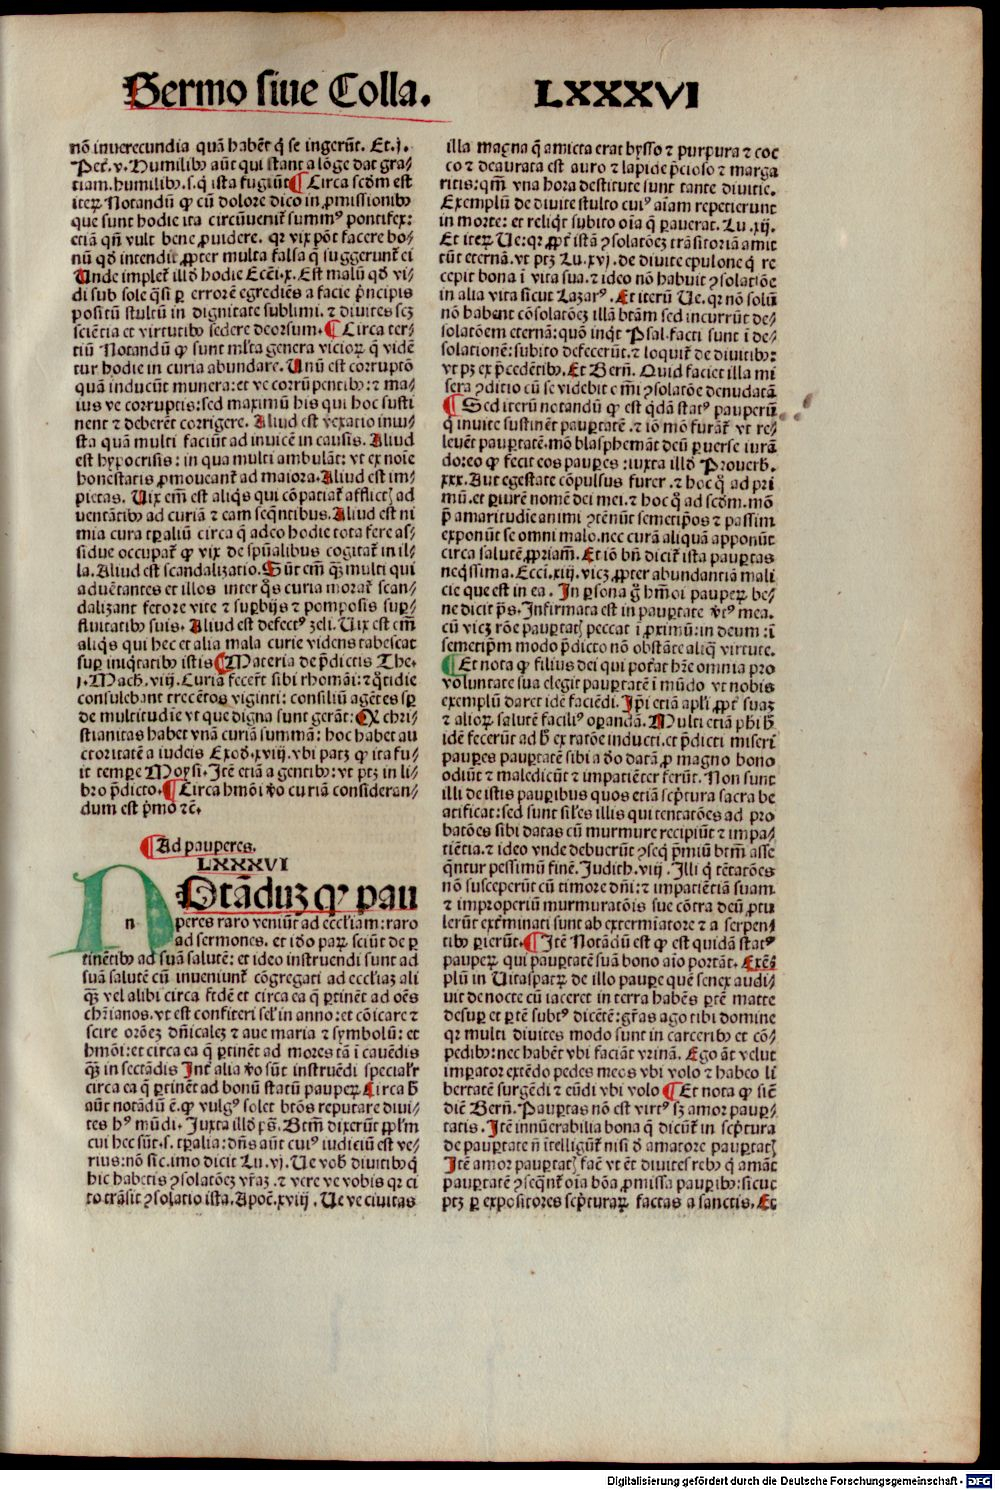 Sermo siue Colla. LXXXVI
nō inuerecundia quā habēt q̄ se ingerūt. Et.j.
Pet̄.v. Humilibꝰ aūt qui stant a lōge dat gra⸗
tiam. humilibꝰ.s.q̄ ista fugiūt ¶ Circa scd̄m est
iteꝝ Notandū ꝙ cū dolore dico in ꝓmissionibꝰ
que sunt hodie ita circūuenit̄ summꝰ pontifex:
etiā qn̄ vult bene ꝓuidere. qꝛ vix pōt facere bo⸗
nū qd̄ intendit ꝓpter multa falsa q̄ suggerunt̄ ei
Unde implet̄ illd̄ hodie Ecc̄i.x. Est malū qd̄ vi⸗
di sub sole q̄si ꝑ errorē egrediēs a facie p̄ncipis
positū stultū in dignitate sublimi. ⁊ diuites sez
sciētia et virtutibꝰ sedere deorsum. ¶ Circa ter⸗
tiū Notandū ꝙ sunt ml̄ta genera vicioꝝ q̄ vidē
tur hodie in curia abundare. Unū est corruptō
quā inducūt munera: et ve corrūpentibꝰ: ⁊ ma⸗
ius ve corruptis: sed maximū his qui hoc susti
nent ⁊ deberēt corrigere. Aliud est vexatio iniu⸗
sta quā multi faciūt ad inuicē in causis. Aliud
est hypocrisis: in qua multi ambulāt: vt ex noīe
honestatis ꝓmoueant̄ ad maiora. Aliud est im⸗
pietas. Uix em̄ est aliq̄s qui cōpatiat̄ afflictꝭ ad
uentātibꝰ ad curiā ⁊ eam seq̄ntibus. Aliud est ni
mia cura tꝑaliū circa q̄ adeo hodie tota fere as⸗
sidue occupat̄ ꝙ vix de spūalibus cogitat̄ in il⸗
la. Aliud est scandalizatio. Sūt em̄ qꝫ multi qui
aduētantes et illos inter q̄s curia morat̄ scan⸗
dalizant fetore vite ⁊ suꝑbijs ⁊ pomposis suꝑ⸗
fluitatibꝰ suis. Aliud est defectꝰ zeli. Uix est em̄
aliq̄s qui hec et alia mala curie videns tabescat
suꝑ iniq̄tatibꝰ istis ¶ Materia de p̄dictis The.
j. Mach̄.viij. Curiā fecer̄t sibi rhomāi: ⁊ q̄tidie
consulebant trecētos viginti: consiliū agētes sꝑ
de multitudīe vt que digna sunt gerāt: Q chri⸗
stianitas habet vnā curiā summā: hoc habet au
ctoritatē a iudeis Exod̄.xviij. vbi patꝫ ꝙ ita fu⸗
it temꝑe Moysi. Itē etiā a gentibꝰ: vt ptꝫ in li⸗
bro p̄dicto. ¶ Circa hmōi v̄o curiā consideran⸗
dum est p̄mo ⁊c̄.
¶ Ad pauperes.
LXXXVI
n Otāduꝫ ꝙ pau
peres raro veniūt ad eccl̄iam: raro
ad sermones. et iđo paꝝ sciūt de ꝑ
tinētibꝰ ad suā salutē: et ideo instruendi sunt ad
suā salutē cū inueniunt̄ cōgregati ad eccl̄iaꝫ ali
qꝫ vel alibi circa fidē et circa ea q̄ ꝑtinēt ad oēs
chr̄ianos. vt est confiteri sel̄ in anno: et cōicare ⁊
scire orōeꝫ dn̄icaleꝫ ⁊ aue maria ⁊ symbolū: et
hmōi: et circa ea q̄ ꝑtinēt ad mores tā ī cauēdis
qꝫ in sectādis Int̄ alia v̄o sūt instruēdi specialr̄
circa ea q̄ ꝑtinēt ad bonū statū pauꝑꝝ Circa h̄
aūt notādū ē. ꝙ vulgꝰ solet btōs reputare diui⸗
tes hꝰ mūdi. Iuxta illđ ps̄. Btm̄ dixerūt ppl̄m
cui hec sūt.s. tꝑalia: dn̄s aūt cuiꝰ iudiciū est ve⸗
rius: nō sic. imo dicit Lu.vj. Ue vob̄ diuitibꝰ q̄
hic habetis ꝯsolatōeꝫ vr̄aꝫ. ⁊ vere ve vobis qꝛ ci
to trāsit ꝯsolatio ista. Apoc̄.xviij. Ue ve ciuitas
illa magna q̄ amicta erat bysso ⁊ purpura ⁊ coc
co ⁊ deaurata est auro ⁊ lapide p̄cioso ⁊ marga
ritis: qm̄ vna hora destitute sunt tante diuitie.
Exemplū de diuite stulto cuiꝰ aīam repetierunt
in morte: et reliq̄t subito oīa q̄ ꝑauerat. Lu.xij.
Et iteꝝ Ue: qꝛ ꝓpt̄ istā ꝯsolatōeꝫ trāsitoriā amit
tūt eternā. vt ptꝫ Lu.xvj. de diuite epulone q̄ re
cepit bona ī vita sua. ⁊ ideo nō habuit ꝯsolatiōe
in alia vita sicut Lazarꝰ. Et iterū Ue. qꝛ nō solū
nō habent cōsolatōeꝫ illā btām sed incurrūt de⸗
solatōem eternā: quō inq̄t Psal. facti sunt ī de⸗
solationē: subito defecerūt. ⁊ loquit̄ de diuitibꝰ:
vt pꝫ ex p̄cedētibꝰ. Et Bern̄. Quid faciet illa mi
sera ꝯditio cū se videbit em̄i ꝯsolatōe denudatā
¶ Sed iterū notandū ꝙ est q̄dā statꝰ pauperū
q̄ inuite sustinēt pauꝑtatē. ⁊ iō mō furāt̄ vt re⸗
leuēt pauꝑtatē. mō blasphemāt deū ꝑuerse iurā
do: eo ꝙ fecit eos pauꝑes: iuxta illđ Prouerb̄.
xxx. Aut egestate cōpulsus furer. ⁊ hoc q̄ ad pri
mū. et ꝑiurē nomē dei mei. ⁊ hoc q̄ ad scđm. mō
p̄ amaritudīe animi ꝯtēnūt semetip̄os ⁊ passim
exponūt se omni malo. nec curā aliquā apponūt
circa salutē ꝓpriam̄. Et iō bn̄ dicit̄ ista pauꝑtas
neq̄ssima. Ecc̄i.xiij. vicꝫ ꝓpter abundantiā mali
cie que est in ea. In ꝑsona g̊ hm̄oi pauꝑꝝ be⸗
ne dicit ps̄. Infirmata est in pauꝑtate v̄tꝰ mea.
cū vicꝫ rōe pauꝑtatꝭ peccat ī ꝓximū: in deum: ī
semetip̄m modo p̄dicto nō obstāte aliq̄ virtute.
¶ Et nota ꝙ filius dei qui pot̄rat hr̄e omnia pro
voluntate sua elegit pauꝑtatē ī mūdo vt nobis
exemplū daret idē faciēdi. Ip̄i etiā apl̄i ꝓpt̄ suaꝫ
⁊ alioꝝ salutē faciliꝰ oꝑandā. Multi etiā ph̄i h̄
idē fecerūt ad h̄ ex ratōe inducti. et p̄dicti miseri
pauꝑes pauꝑtatē sibi a đo datā ꝓ magno bono
odiūt ⁊ maledicūt ⁊ impatiēter ferūt. Non sunt
illi de istis pauꝑibus quos etiā scp̄tura sacra be
atificat: sed sunt sil̄es illis qui tentatōes ad pro
batōes sibi datas cū murmure recipiūt ⁊ impa⸗
tiētia. ⁊ ideo vnde debuerūt ꝯseq̄ p̄miū btm̄ asse
q̄ntur pessimū finē. Judith.viij. Illi q̄ tētatōes
nō susceperūt cū timore dn̄i: ⁊ impatiētiā suam
⁊ improperiū murmuratōis sue cōtra deū ꝓtu
lerūt ext̄minati sunt ab extermīatore ⁊ a serpen⸗
tibꝰ ꝑierūt. ¶ Itē Notādū est ꝙ est quidā statꝰ
pauperꝝ qui pauꝑtatē suā bono aīo portāt. Exē⸗
plū in Uitaspatꝝ de illo pauꝑe quē senex audi⸗
uit de nocte cū iaceret in terra habēs ꝑtē matte
desuꝑ et ꝑtē subtꝰ dicētē: gr̄as ago tibi domine
qꝛ multi diuites modo sunt in carceribꝰ et cō⸗
pedibꝰ: nec habēt vbi faciāt vrinā. Ego āt velut
imꝑator extēdo pedes meos vbi volo ⁊ habeo li
bertatē surgēdi ⁊ eūdi vbi volo ¶ Et nota ꝙ sic̄
dic̄ Bern̄. Pauꝑtas nō est virtꝰ sꝫ amor pauꝑ⸗
tatis. Itē innūerabilia bona q̄ dicūt̄ in scp̄tura
de pauꝑtate n̄ ītelligūt̄ nisi đ amatore pauꝑtatꝭ
Itē amor pauꝑtatꝭ facit vt ēt diuites rebꝰ q̄ amāt
pauꝑtatē ꝯseqūt̄ oīa bōa ꝓmissa pauꝑibꝰ: sicut
ptꝫ ꝑ expositores scp̄turaꝝ factas a sanctis. Et
Digitalisierung gefördert durch die Deutsche Forschungsgemeinschaft - DFG